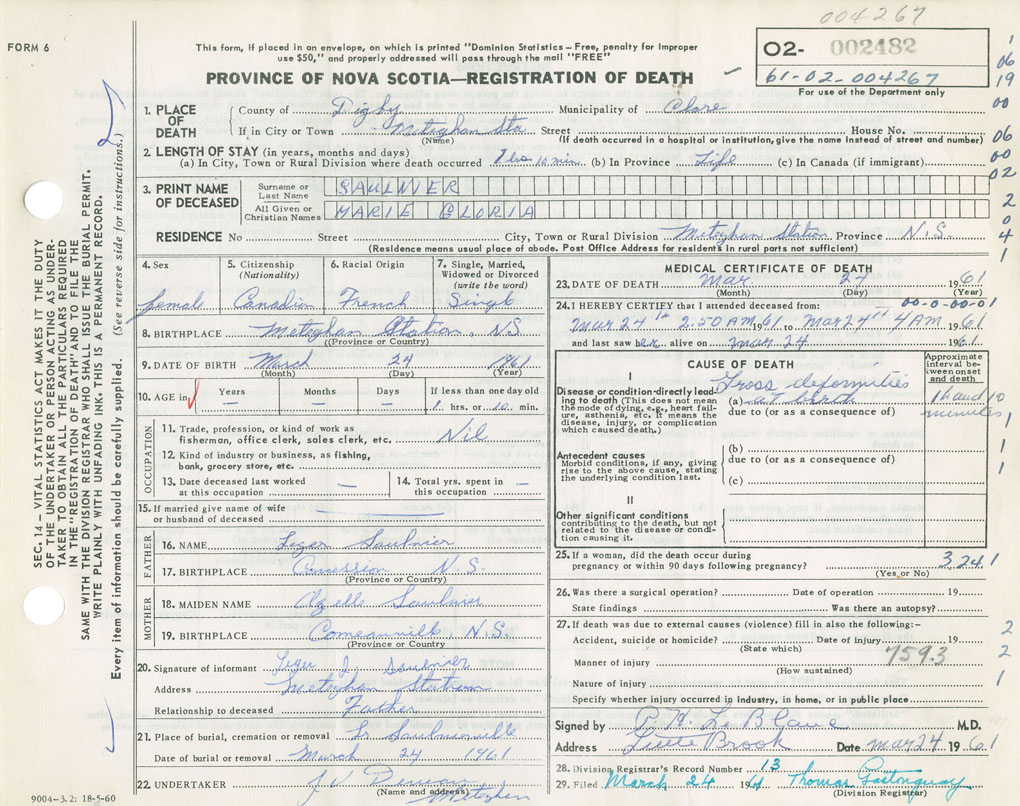 004267
FORM 6
This form, if placed in an envelope, on which is printed "Dominion Statistics – Free, penalty for improper
use $50," and properly addressed will pass through the mail "FREE"
PROVINCE OF NOVA SCOTIA—REGISTRATION OF DEATH
O2- 002482
61-02-004267
For use of the Department only
1. PLACE OF DEATH
County of Digby Municipality of Clare
If in City or Town Meteghan Sta Street House No.
(Name) (If death occurred in a hospital or institution, give the name instead of street and number)
2. LENGTH OF STAY (in years, months and days)
(a) In City, Town or Rural Division where death occurred 1 hrs 10 min. (b) In Province Life (c) In Canada (if immigrant)
3. PRINT NAME OF DECEASED
Surname or Last Name SAULNIER
All Given or Christian Names MARIE GLORIA
RESIDENCE No Street City, Town or Rural Division Meteghan Station Province N.S.
(Residence means usual place of abode. Post Office Address for residents in rural parts not sufficient)
4. Sex
female
5. Citizenship
(Nationality)
Canadian
6. Racial Origin
French
7. Single, Married,
Widowed or Divorced
(write the word)
Single
8. BIRTHPLACE Meteghan Station, NS
(Province or Country)
9. DATE OF BIRTH March 24 1961
(Month) (Day) (Year)
10. AGE in
Years –
Months –
Days –
If less than one day old
1 hrs. or 10 min.
OCCUPATION
11. Trade, profession, or kind of work as
fisherman, office clerk, sales clerk, etc. Nil
12. Kind of industry or business, as fishing,
bank, grocery store, etc.
13. Date deceased last worked
at this occupation –
14. Total yrs. spent in
this occupation –
15. If married give name of wife
or husband of deceased
FATHER
16. NAME Leger Saulnier
17. BIRTHPLACE Concession N.S.
(Province or Country)
MOTHER
18. MAIDEN NAME Saulnier
19. BIRTHPLACE Comeauville, N.S.
(Province or Country
20. Signature of informant Leger J. Saulnier
Address Meteghan Station
Relationship to deceased Father
21. Place of burial, cremation or removal Saulnierville
Date of burial or removal March 24 1961
22. UNDERTAKER
(Name and address) Meteghan
9004–3.2: 18-5-60
MEDICAL CERTIFICATE OF DEATH
23. DATE OF DEATH Mar. 24 1961
(Month) (Day) (Year)
24. I HEREBY CERTIFY that I attended deceased from: 00-0-00-01
Mar 24th 2.50 AM 1961 to Mar 24th 4 AM 1961
and last saw her alive on Mar 24 1961
CAUSE OF DEATH
Approximate interval between onset and death
I
Disease or condition directly leading to death (This does not mean the mode of dying, e.g., heart failure, asthenia, etc. It means the disease, injury, or complication which caused death.)
Gross deformities
(a) at birth
1 h and 10 minutes
due to (or as a consequence of)
Antecedent causes
Morbid conditions, if any, giving rise to the above cause, stating the underlying condition last.
(b)
due to (or as a consequence of)
(c)
II
Other significant conditions
contributing to the death, but not related to the disease or condition causing it.
25. If a woman, did the death occur during
pregnancy or within 90 days following pregnancy? 3 241
(Yes or No)
26. Was there a surgical operation? Date of operation 19
State findings Was there an autopsy?
27. If death was due to external causes (violence) fill in also the following:–
Accident, suicide or homicide? Date of injury 19
(State which) 759.3
Manner of injury
(How sustained)
Nature of injury
Specify whether injury occurred in industry, in home, or in public place
Signed by LeBlanc M.D.
Address Little Brook Date Mar 24 1961
28. Division Registrar's Record Number 13
29. Filed March 24 1961 Thomas
(Division Registrar)
SEC. 14 – VITAL STATISTICS ACT MAKES IT THE DUTY
OF THE UNDERTAKER OR PERSON ACTING AS UNDER-
TAKER TO OBTAIN ALL THE PARTICULARS REQUIRED
IN THE "REGISTRATION OF DEATH" AND TO FILE THE
SAME WITH THE DIVISION REGISTRAR WHO SHALL ISSUE THE BURIAL PERMIT.
WRITE PLAINLY WITH UNFADING INK. THIS IS A PERMANENT RECORD.
Every item of information should be carefully supplied. (See reverse side for instructions.)
1
06
19
00
06
00
02
2
0
4
1
1
1
1
2
2
1